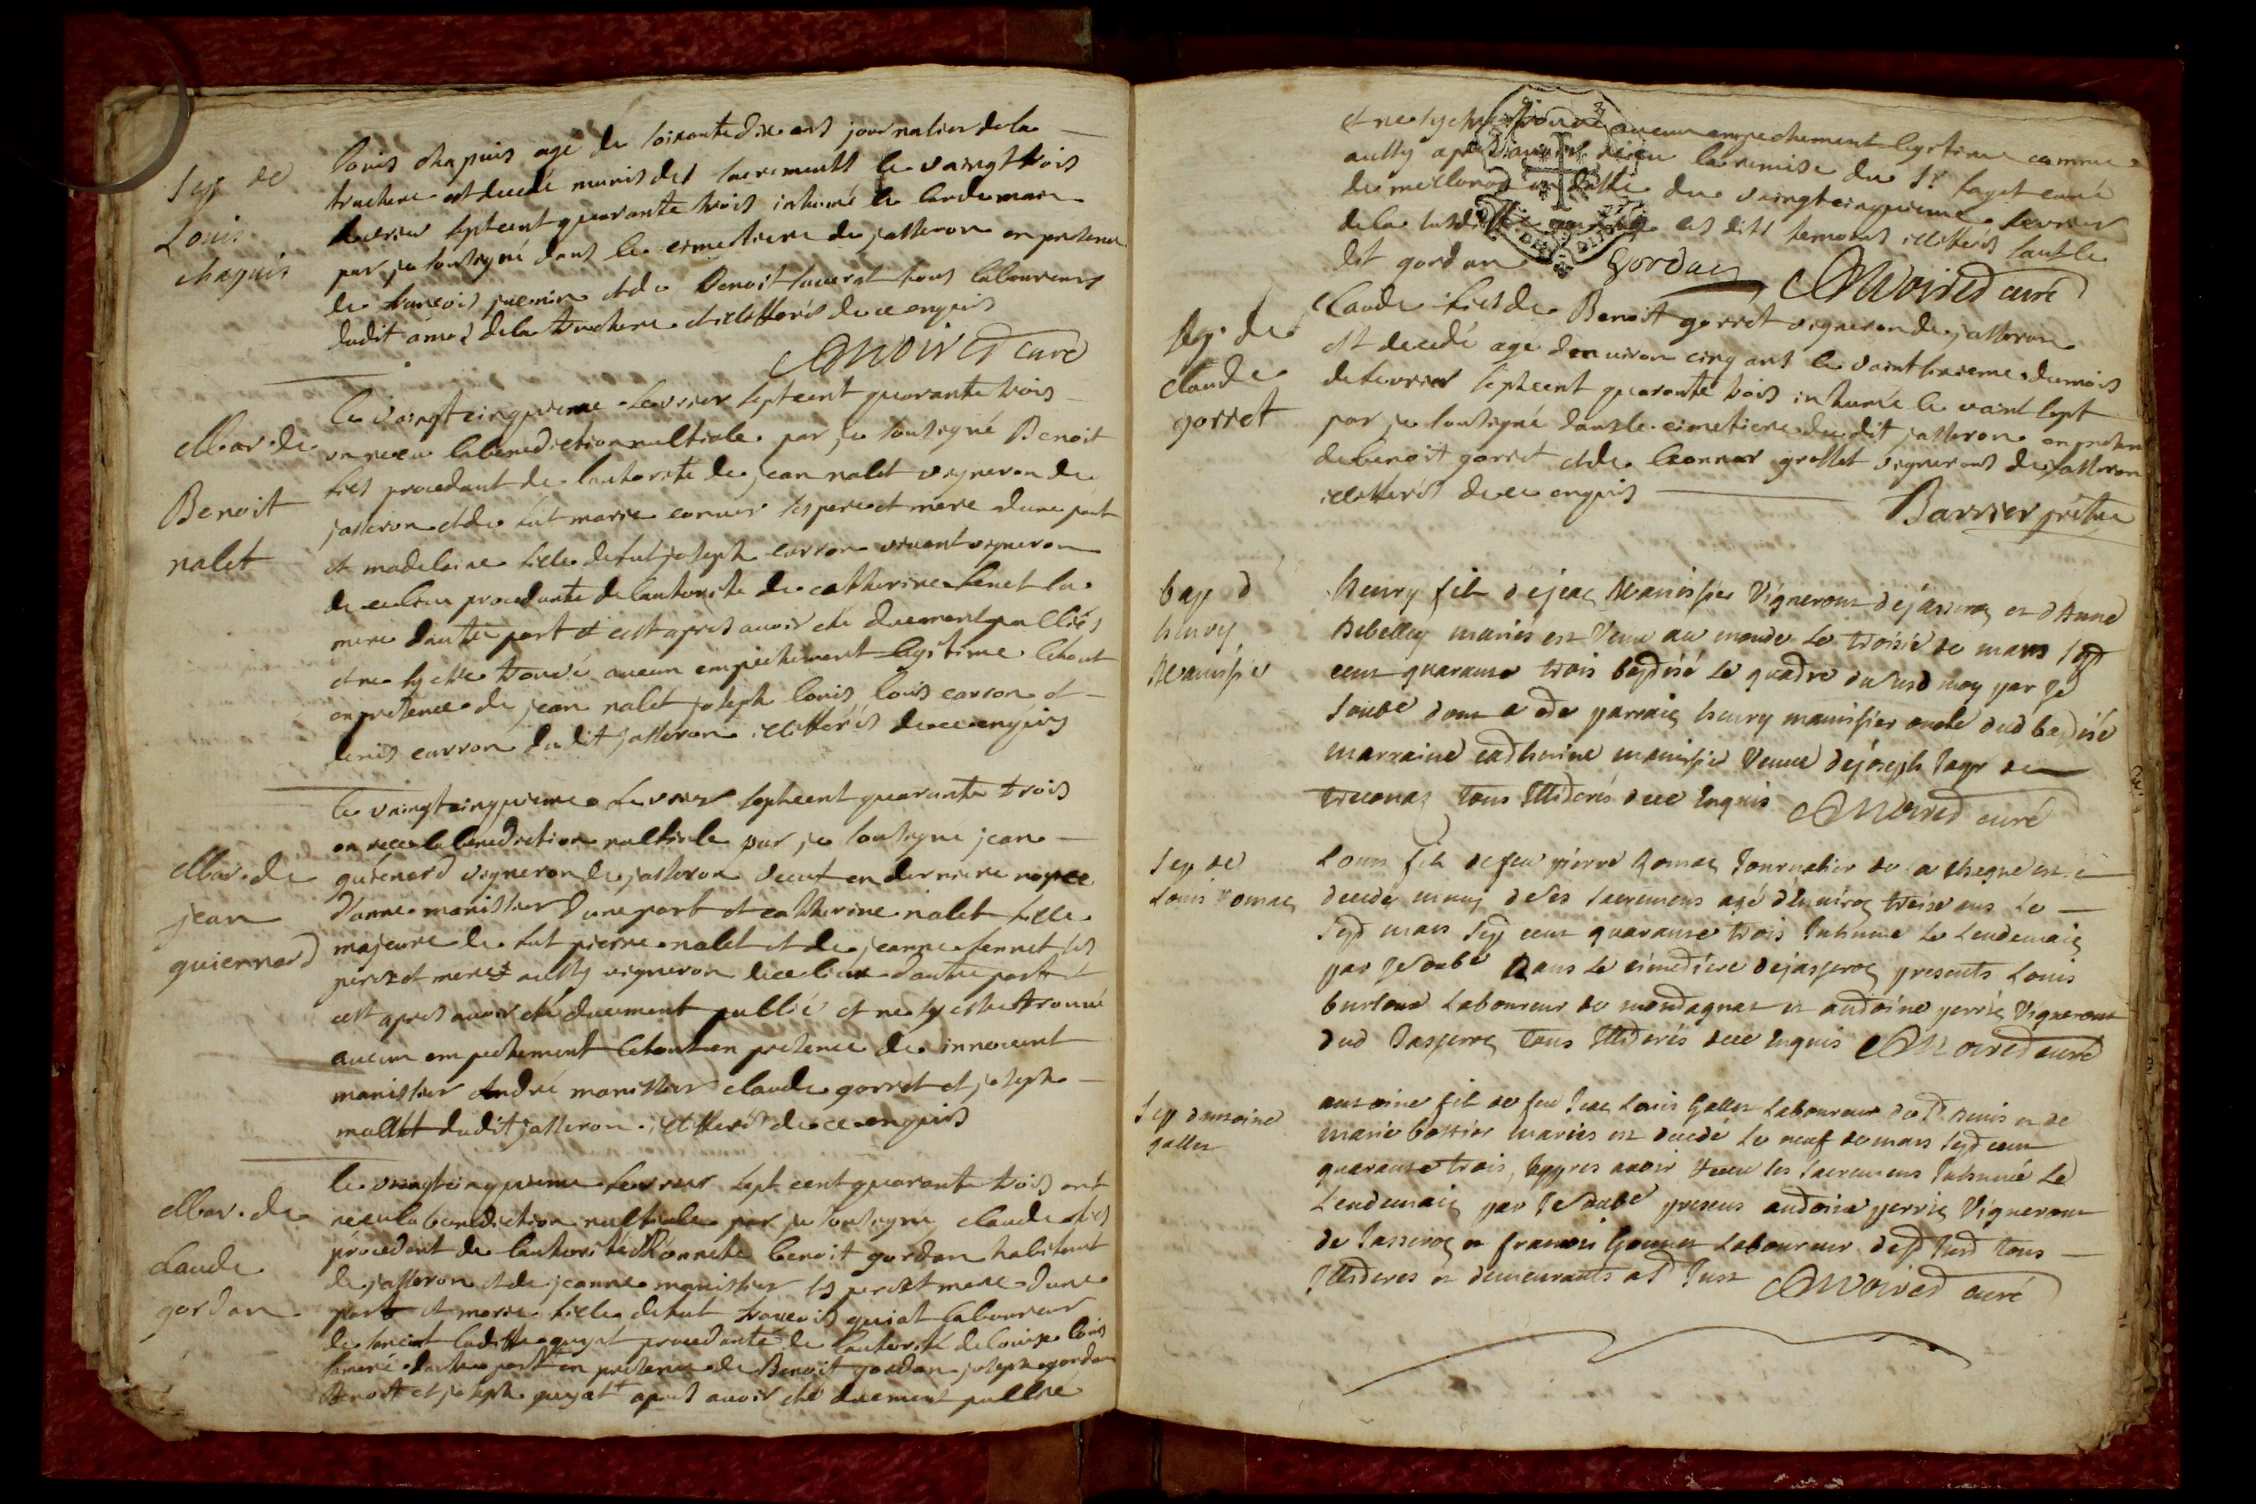 Sep de
Louis
chapuis
louis chapuis agé de soixante dix ans journalier de la
truchere est decedé munis des sacrements le vaingt trois
fevrier sept cent quarante trois inhumé le lendemain
par je soussigné dans le cimetiere de jasseron en presence
de francois juenin et de Benoit tous laboureurs
dudit de la truchere et illitterés de ce enquis
Moiret curé
Mar. de
Benoit
nalet
le vaingt cinquieme fevrier sept cent quarante trois
on receu la benediction nuptiale par je soussigné Benoit
fils procedant de l'authorité de jean nalet vigneron de
jasseron et de fut marie ses pere et mere d'une part
et madelaine fille de fut joseph carron vivant vigneron
de ce lieu procedante de l'authorité de catherine fenet sa
mere d'autre part et c'est apres avoir eté duement publiés
et ne sy etre trouvé aucun empechement legitime le tout
en presence de jean nalet joseph louis louis carron et
denis carron dudit jasseron illitterés de ce enquis
Mar. de
jean
guiennard
le vaingt cinquieme fevrier sept cent quarante trois
on receu la benediction nuptiale par je soussigné jean
guienard vigneron de jasseron veuf en derniere nopce
d'anne manissier d'une part et catherine nalet fille
majeure de fut pierre nalet et de jeanne fennet ses
pere et mere aussy vigneron de ce lieu d'autre part et
c'est apres avoir eté duement publié et ne sy estre trouvé
aucun empechement le tout en presence de innocent
manissier André manissier claude gorret et joseph
dudit jasseron illitterés de ce enquis
Mar. de
claude
gordan
le vaingt cinquieme fevrier sept cent quarante trois ont
receu la benediction nuptiale par je soussigné claude fils
procedant de l'authorité d'honnete benoit gordan habitant
de jasseron et de jeanne manissier ses pere et mere d'une
part et marie fille de fut francois guiat laboureur
de laditte guyat procedante de l'authorité de louis
d'autre part en presence de Benoit gordan joseph gordan
Benoit et joseph guyat apres avoir eté duement publié
et ne sy etre trouvé aucun empechement legitime comme
aussy apres avoir receu la remise du Sr sayet curé
de meillonas en datte du vaingt cinquieme fevrier
de la susditte les dits temoins illitterés sauf le
dit gordan Gordan Moiret curé
Sep. de
claude
gorret
Claude fils de Benoit gorret vigneron de jasseron
est decedé agé d'environ cinq ans le vaint sixieme du mois
de fevrier sept cent quarante trois inhumé le vaint sept
par je soussigné dans le cimetiere du dit jasseron en presence
de benoit gorret et de leonnar grosset vignerons de jasseron
illitterés de ce enquis
Barrier prêtre
bap d
henry
Manissier
henry fils de jean Manissier Vigneron de jasseron et d'Anne
Rebellay mariés est Venu au monde le troisie de mars sept
cent quarante trois baptisé le quatre du susd moy par je
soubé dont a eté parrain henry manissier oncle dud baptisé
marraine catherine manissier Veuve de joseph
treconas tous Illiterés de ce Enquis Moiret curé
Sep de
Louis romae
Louis fils de feu pierre Journalier de est
decedé muny de ses sacremens agé d'Environ treise ans le
sept mars sept cent quarante trois Inhumé le Lendemain
par je soubé Dans le cimetiere de jasseron presents Louis
Laboureur de montagnat et antoine perrin Vigneron
dud Jasseron tous Illiterés de ce Enquis Moiret curé
Sep d'antoine
gallet
antoine fils de feu Jean Louis Gallet Laboureur de St denis et de
marie mariés est decedé le neuf de mars sept cent
quarante trois, apres avoir receu les sacremens Inhumé le
Lendemain par je soubé presens antoine perrin Vigneron
de Jasseron et francois Laboureur de St Just tous
Illiteres et demeurants a St Just Moiret curé